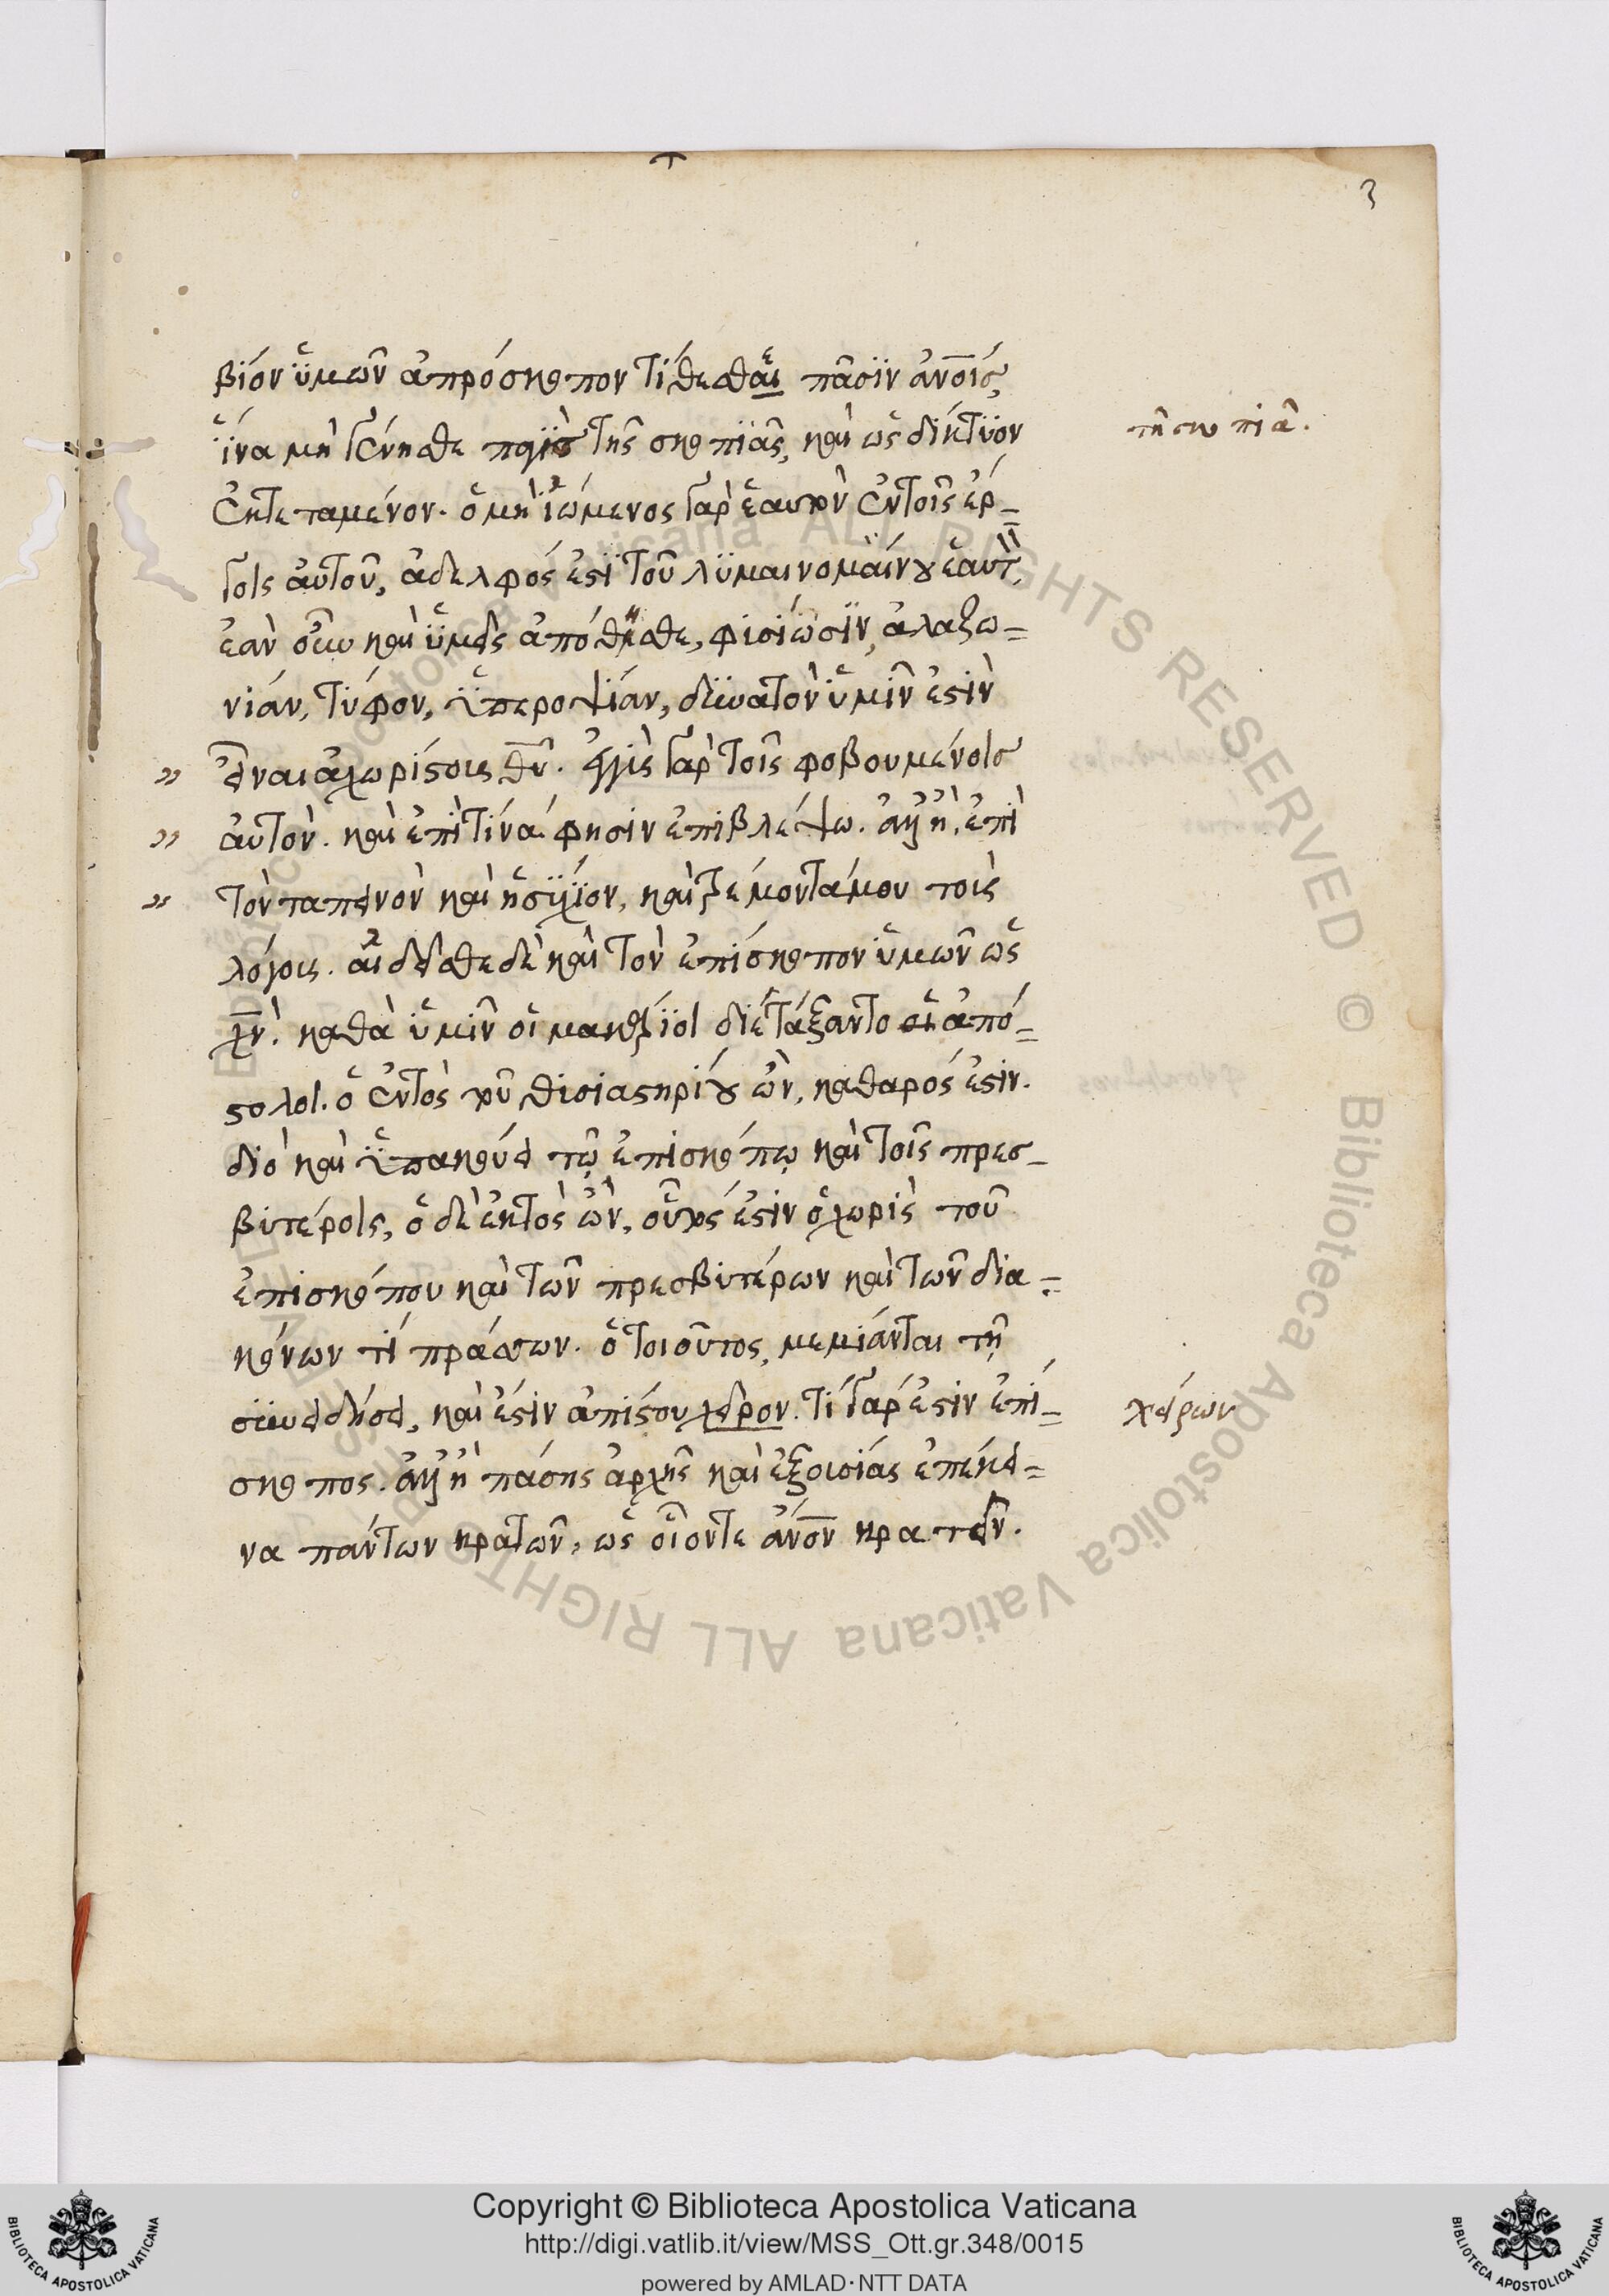 3
βίον ὑμῶν ἀπρόσκοπον τίθεσθαι πᾶσιν ἀνοις,
ἵνα μὴ γένησθε παγὶς τῆς σκοπιᾶς, καὶ ὡς δίκτυον
τῇ σκοπιᾷ.
ἐκτεταμένον. ὁ μὴ ἰώμενος γὰρ ἑαυτὸν ἐν τοῖς ἔρ=
γοις αὐτοῦ, ἀδελφός ἐστι τοῦ λυμαινομαίνου ἑαυτ,
ἐὰν οὖν καὶ ὑμεῖς ἀπόθησθε, φισίωσιν, ἀλαζο=
νιάν, τύφον, ὑπεροψίαν, δυνατὸν ὑμῖν ἐστὶν
" εἶναι ἀχωρίστοις θυ. ἐγγὺς γὰρ τοῖς φοβουμένοις
" αὐτὸν. καὶ ἐπὶ τίνα φησιν ἐπιβλέψω. ἀλλ' ἢ ἐπὶ
" τὸν ταπεινὸν καὶ ἡσύχιον, καὶ τρέμοντά μου τοὺς
λόγους. αἰδεῖσθε δὲ καὶ τὸν ἐπίσκοπον ὑμῶν ὡς
χν. καθὰ ὑμῖν οἱ μακάριοι διετάξαντο οἱ ἀπό=
στολοι. ὁ ἐντὸς τοῦ θισιαστηρίου ὢν, καθαρός ἐστιν.
διὸ καὶ ὑπακούει τῷ ἐπισκόπῳ καὶ τοῖς πρεσ=
βιτέροις, ὁ δὲ ἐκτὸς ὢν, οὗτός ἐστιν ὁ χωρὶς τοῦ
ἐπισκόπου καὶ τῶν πρεσβιτέρων καὶ τῶν δια=
κόνων τί πράσσων. ὁ τοιοῦτος, μεμίανται τῇ
συνειδήσει, καὶ ἔστιν ἀπίστου χεῖρον. τί γάρ ἐστιν ἐπί=
χείρων
σκοπος. ἀλλ' ἢ πάσης ἀρχῆς καὶ ἐξουσίας ἐπέκει=
να πάντων κρατῶν, ὡς οἷόν τε ἄνον κρατεῖν.
Copyright © Biblioteca Apostolica Vaticana
http://digi.vatlib.it/view/MSS_Ott.gr.348/0015
powered by AMLAD·NTT DATA